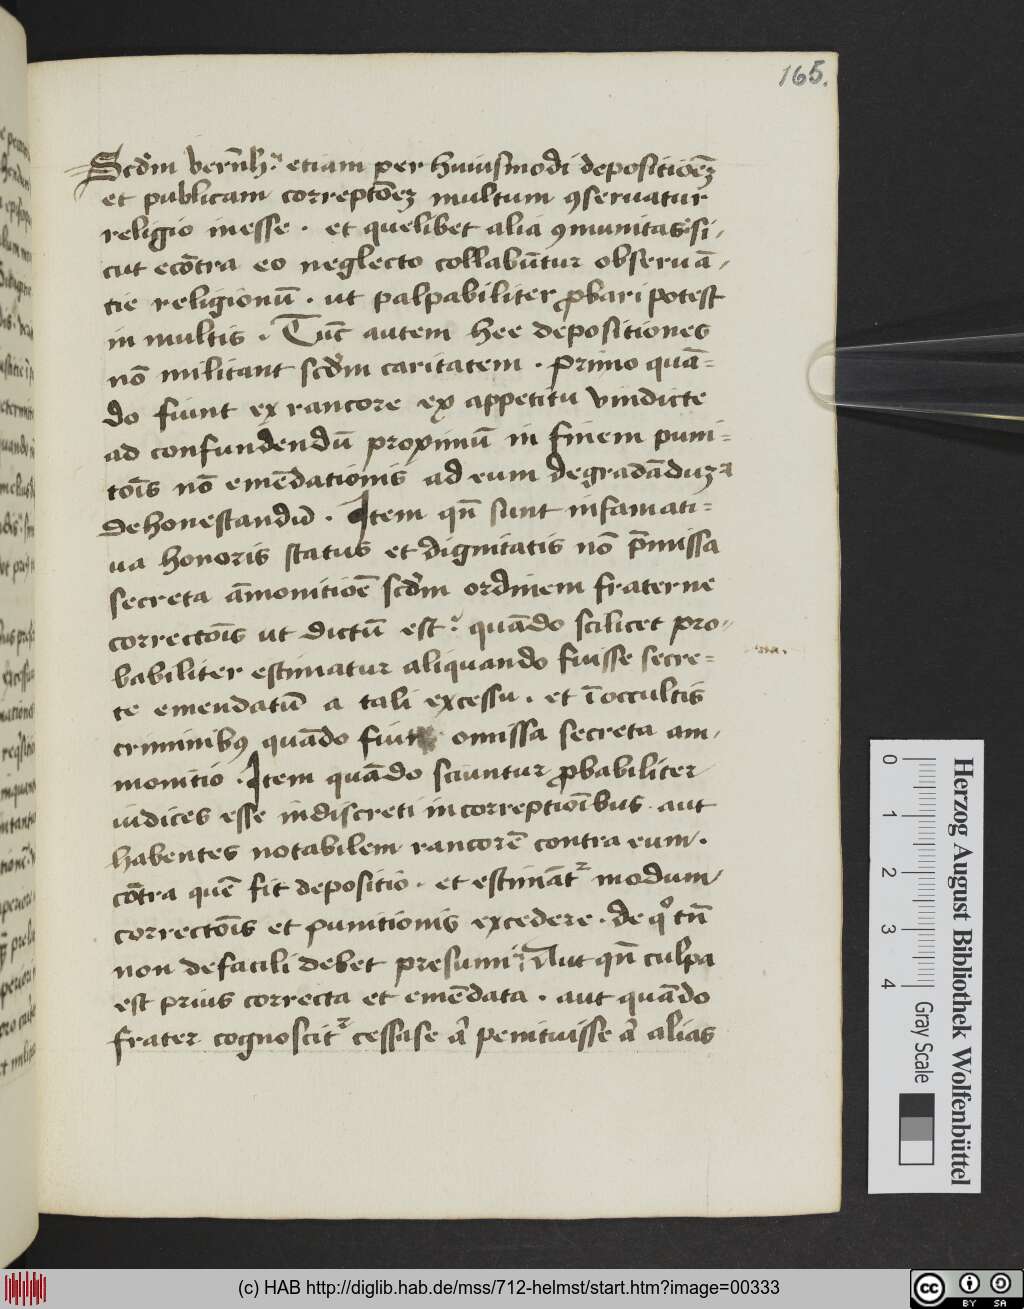 165.
Scd̄m bern̄h. etiam per huiusmodi depositiōeꝫ
et publicam correptōeꝫ multum ꝯseruatur
religio in esse . et quelibet alia ꝯmunitas . si-
cut ecōtra eo neglecto collabūtur obseruā-
tie religionū . ut palpabiliter ꝓbari potest
in multis . Tūc autem hee depositiones
nō militant scd̄m caritatem . primo quā=
do fiunt ex rancore ex appetitu vindicte
ad confundendū proximū in finem puni=
tōis nō emēdationis ad eum degradāduꝫ
dehonestandū . Item qn̄ sunt infamati=
ua honoris status et dignitatis nō p̄missa
secreta āmonitiōē scd̄m ordinem fraterne
correctōis ut dictū est . quādo scilicet pro-
babiliter estimatur aliquando fuisse secre=
te emendatū a tali excessu . et ī occultis
criminibꝰ quādo fiunt omissa secreta am-
monitio . Item quādo sciuntur ꝓbabiliter
iudices esse indiscreti in correptiōibus aut
habentes notabilem rancorē contra eum .
cōtra quē fit depositio . et estimāt᷑ modum
correctōis et punitionis excedere . de qͦ tn̄
non de facili debet presumi . Aut qn̄ culpa
est prius correcta et emēdata . aut quādo
frater cognoscit᷑ cessasse aͥ penituisse aͥ alias
Herzog August Bibliothek Wolfenbüttel
0 1 2 3 4
Gray Scale
(c) HAB http://diglib.hab.de/mss/712-helmst/start.htm?image=00333
cc BY SA